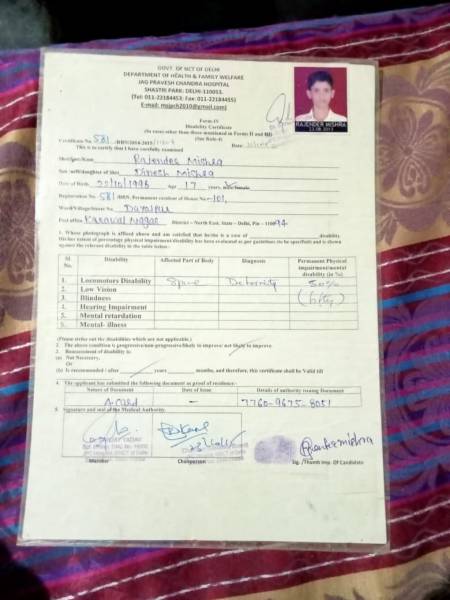 GOVT. OF NCT OF DELHI
DEPARTMENT OF HEALTH & FAMILY WELFARE
JAG PRAVESH CHANDRA HOSPITAL
SHASTRI PARK: DELHI-110053.
(Tel: 011-22184453; Fax: 011-22184455)
E-mail: msjpch2010@gmail.com)
RAJENDER MISHRA
Form-IV
Disability Certificate
(In cases other than those mentioned in Forms II and III)
(See Rule-4)
Certificate No. 581
Date
This is to certify that I have carefully examined
Name Rajender Mishra
Dinesh Mishra
Date of Birth Age 17 years, male/female
Registration No. 581 Permanent resident of House No. -101,
Ward/Village/Street No. Dayalpur
Post office Karawal Naggar District – North East, State – Delhi, Pin – 110094
1. Whose photograph is affixed above and am satisfied that he/she is a case of disability.
His/her extent of percentage physical impairment/disability has been evaluated as per guidelines (to be specified) and is shown
against the relevant disability in the table below:
Sl. No. Disability Affected Part of Body Diagnosis Permanent Physical impairment/mental disability (in %)
1. Locomotors Disability Spine Deformity 50%
2. Low Vision (fifty)
3. Blindness
4. Hearing Impairment
5. Mental retardation
Mental- illness
(Please strike out the disabilities which are not applicable.)
2. The above condition is progressive/non-progressive/likely to improve/ not likely to improve.
3. Reassessment of disability is:
(a) Not Necessary,
Or
(b) Is recommended / after years, months, and therefore, this certificate shall be Valid till
4. The applicant has submitted the following document as proof of residence:
Nature of Document Date of Issue Details of authority issuing Document
A-Card – 7760-9675-8051
5. Signature and seal of the Medical Authority.
Member Chairperson Sig. /Thumb Imp. Of Candidate